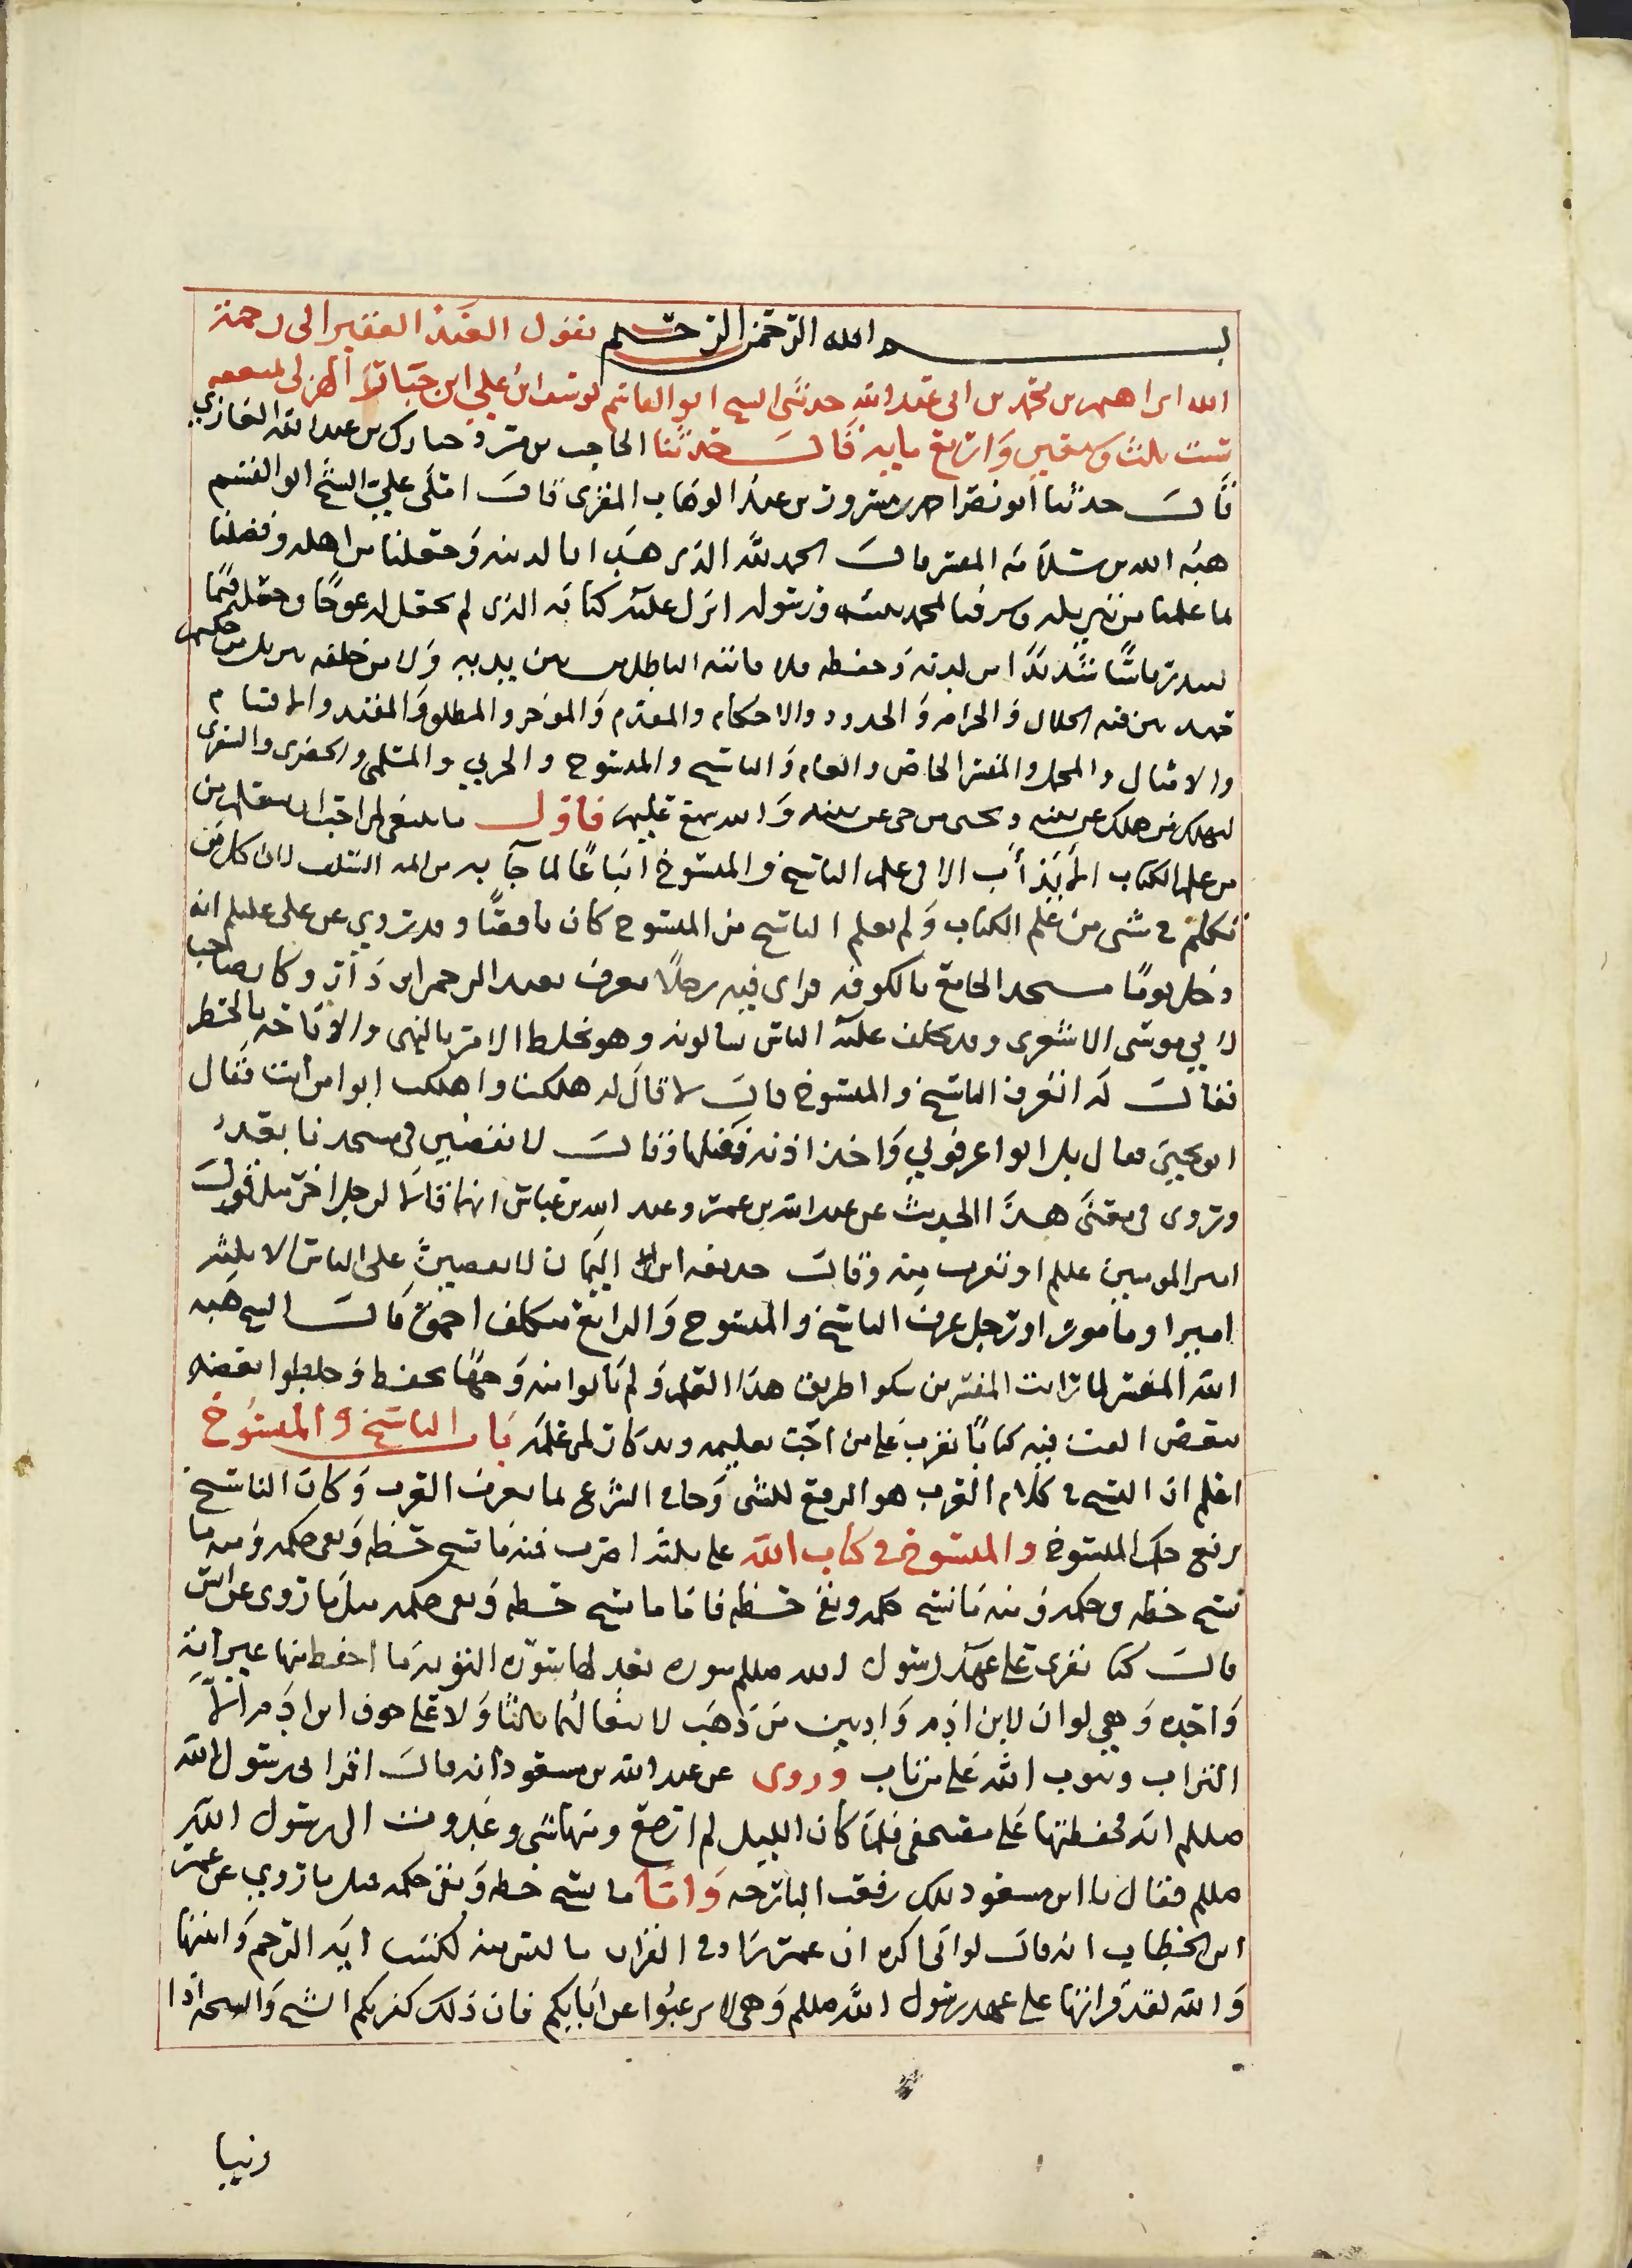 بسم الله الرحمن الرحيم يقول العبد الفقير الى رحمة
الله ابراهيم بن محمد بن ابي عبد الله حدثني الشيخ ابو القاسم يوسف ابن علي ابن جباتة الهزلي
سنت ثلث وسبعين واربع مايه قال حدثنا الحاجب بن مبارك بن عبد الله
قال حدثنا ابو نصر احمد بن مسرور بن عبد الوهاب المقرى قال املى علي الشيخ ابو القسم
هبه الله بن سلامه المفسر قال الحمد لله الذي هدانا لدينه وجعلنا من اهله وفضلنا
بما علمنا من تنزيله وشرفنا بمحمد نبيه ورسوله انزل عليه كتابه الذي لم يجعل له عوجا وجعله قيما
لينذر باسا شديدا من لدنه وحفظه فلا ياتيه الباطل من بين يديه ولا من خلفه تنزيل من حكيم
حميد بين فيه الحلال والحرام والحدود والاحكام والمقدم والموخر والمطلق والمقيد والاقسام
والامثال والمجمل والمفسر الخاص والعام والناسخ والمنسوخ والحربي والسلمي والحضرى والسفرى
ليهلك من هلك عن بينه ويحيى من حي عن بينه والله سميع عليم فاول ما ينبغي لمن احب ان يتعلم من
من علم الكتاب الابتدأب الا في علم الناسخ والمنسوخ اتباعا لما جآ به من ايمه السلف لان كل من
تكلم في شى من علم الكتاب ولم يعلم الناسخ من المنسوخ كان ناقصا وقد روي عن علي عليلم انه
دخل يوما مسجد الجامع بالكوفه فراى فيه رجلا يعرف بعبد الرحمن ابن دآب وكان صاحب
لابي موسى الاشعرى وقد تحلف عليه الناس يسالونه وهو يخلط الامر بالنهى والاباحه بالحظر
فقال له اتعرف الناسخ والمنسوخ قال لا قال له هلكت واهلكت ابو من انت فقال
ابو يحيى فقال بل ابو اعرفوني واخذ اذنه ففتلها وقال لا تقضين في مسجدنا بعد
وروى في معنى هذا الحديث عن عبد الله بن عمر وعبد الله بن عباس انهما قالا لرجل اخر مثل قول
امير المومنين عليلم او قريب منه وقال حذيفه ابن اليمان لا يقصين على الناس الا ثلثه
امير او مامور او رجل عرف الناسخ والمنسوخ والرابع متكلف احمق قال الشيخ هبه
الله المفسر لما رايت المفسرين سلكوا طريق هذا العلم ولم ياتوا منه وجها يحفظ وخلطوا بعضه
ببعض الفت فيه كتابا يقرب على من احب تعليمه وتذكارا لمن علمه باب الناسخ والمنسوخ
اعلم ان النسخ في كلام العرب هو الرفع للشى وجاء الشرع بما تعرف العرب وكان الناسخ
يرفع حكم المنسوخ والمنسوخ في كتاب الله على ثلثه اضرب فمنه ما نسخ خطه وبقى حكمه ومنه ما
نسخ خطه وحكمه ومنه ما نسخ حكمه وبقى خطه فاما ما نسخ خطه وبقى حكمه مثل ما روى عن انس
قال كنا نقرى على عهد رسول الله صللم سوره نعد لها سوره التوبه ما احفظ منها غير ايه
واحده وهي لو ان لابن ادم واديين من ذهب لابتغا لهما ثالثا ولا يملى جوف ابن ادم الا
التراب ويتوب الله على من تاب وروى عن عبد الله بن مسعود انه قال اقراني رسول الله
صللم ايه فحفظتها على مصحفي فلما كان الليل لم ارجع منها بشى وغدوت الى رسول الله
صللم فقال يا ابن مسعود تلك رفعت البارحه واما ما نسخ خطه وبقى حكمه مثل ما روي عن عمر
ابن الخطاب انه قال لو اني اكره ان عمر زاد في القران ما ليس منه لكتبت ايه الرجم واثبتها
والله لقد قراتها على عهد رسول الله صللم وهى لا ترغبوا عن ابايكم فان ذلك كفر بكم الشيخ والشيخه اذا
زنيا